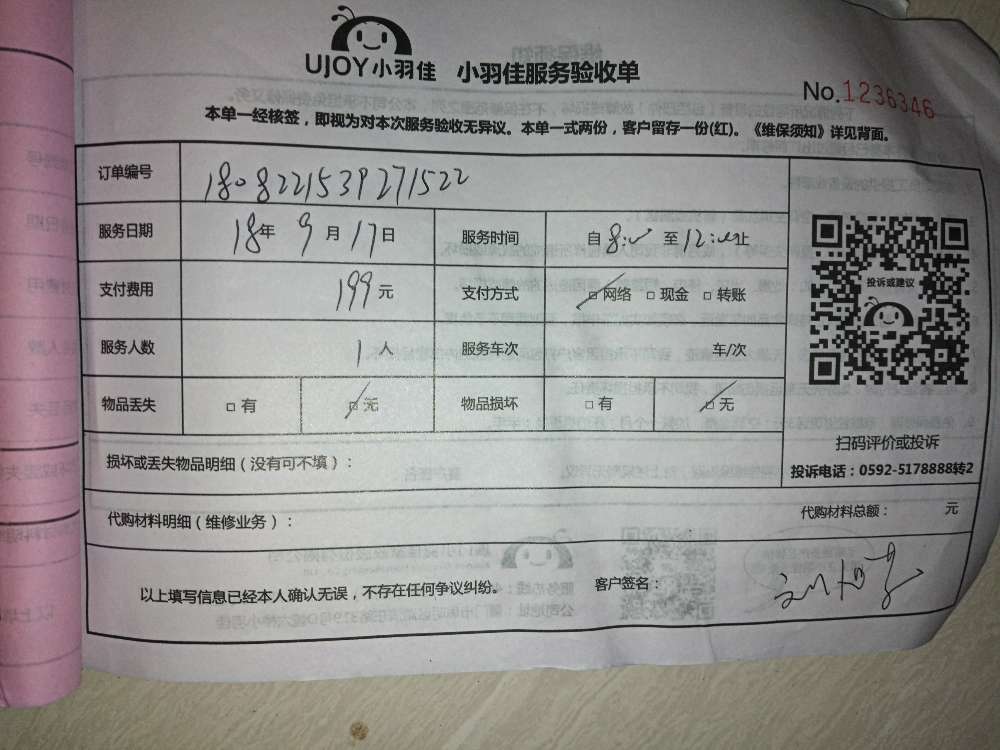 UJOY小羽佳 小羽佳服务验收单
No.1236346
本单一经核签，即视为对本次服务验收无异议。本单一式两份，客户留存一份(红)。《维保须知》详见背面。
订单编号 1808221539271522
服务日期 18年 9月 17日 服务时间 自 8: 至 12: 止
支付费用 199元 支付方式 □网络 □现金 □转账
投诉或建议
服务人数 1人 服务车次 车/次
物品丢失 □有 □无 物品损坏 □有 □无
扫码评价或投诉
投诉电话：0592-5178888转2
损坏或丢失物品明细（没有可不填）：
代购材料明细（维修业务）： 代购材料总额： 元
以上填写信息已经本人确认无误，不存在任何争议纠纷。 客户签名：